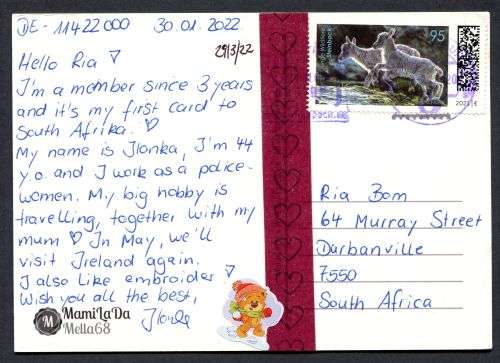 DE-11422000 30.01.2022
29/3/22
Hello Ria ♡
I'm a member since 3 years
and it's my first card to
South Afrika. ♡
My name is Ilonka, I'm 44
y.o. and I work as a police-
women. My big hobby is
travelling, together with my
mum ♡ In May, we'll
visit Ireland again.
I also like embroider ♡
Wish you all the best,
Ilonka
M
MamiLaDa
Mella68
95
Ria Bom
64 Murray Street
Durbanville
7550
South Africa